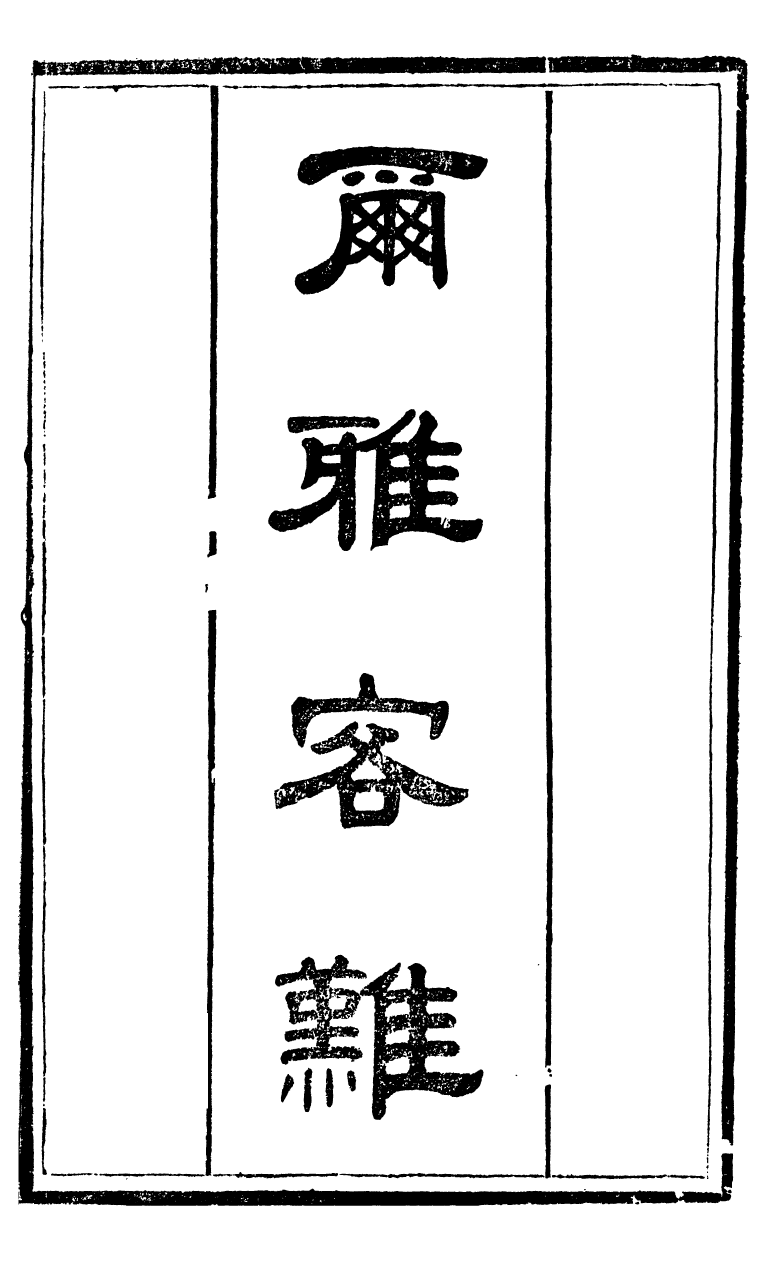 爾雅客難